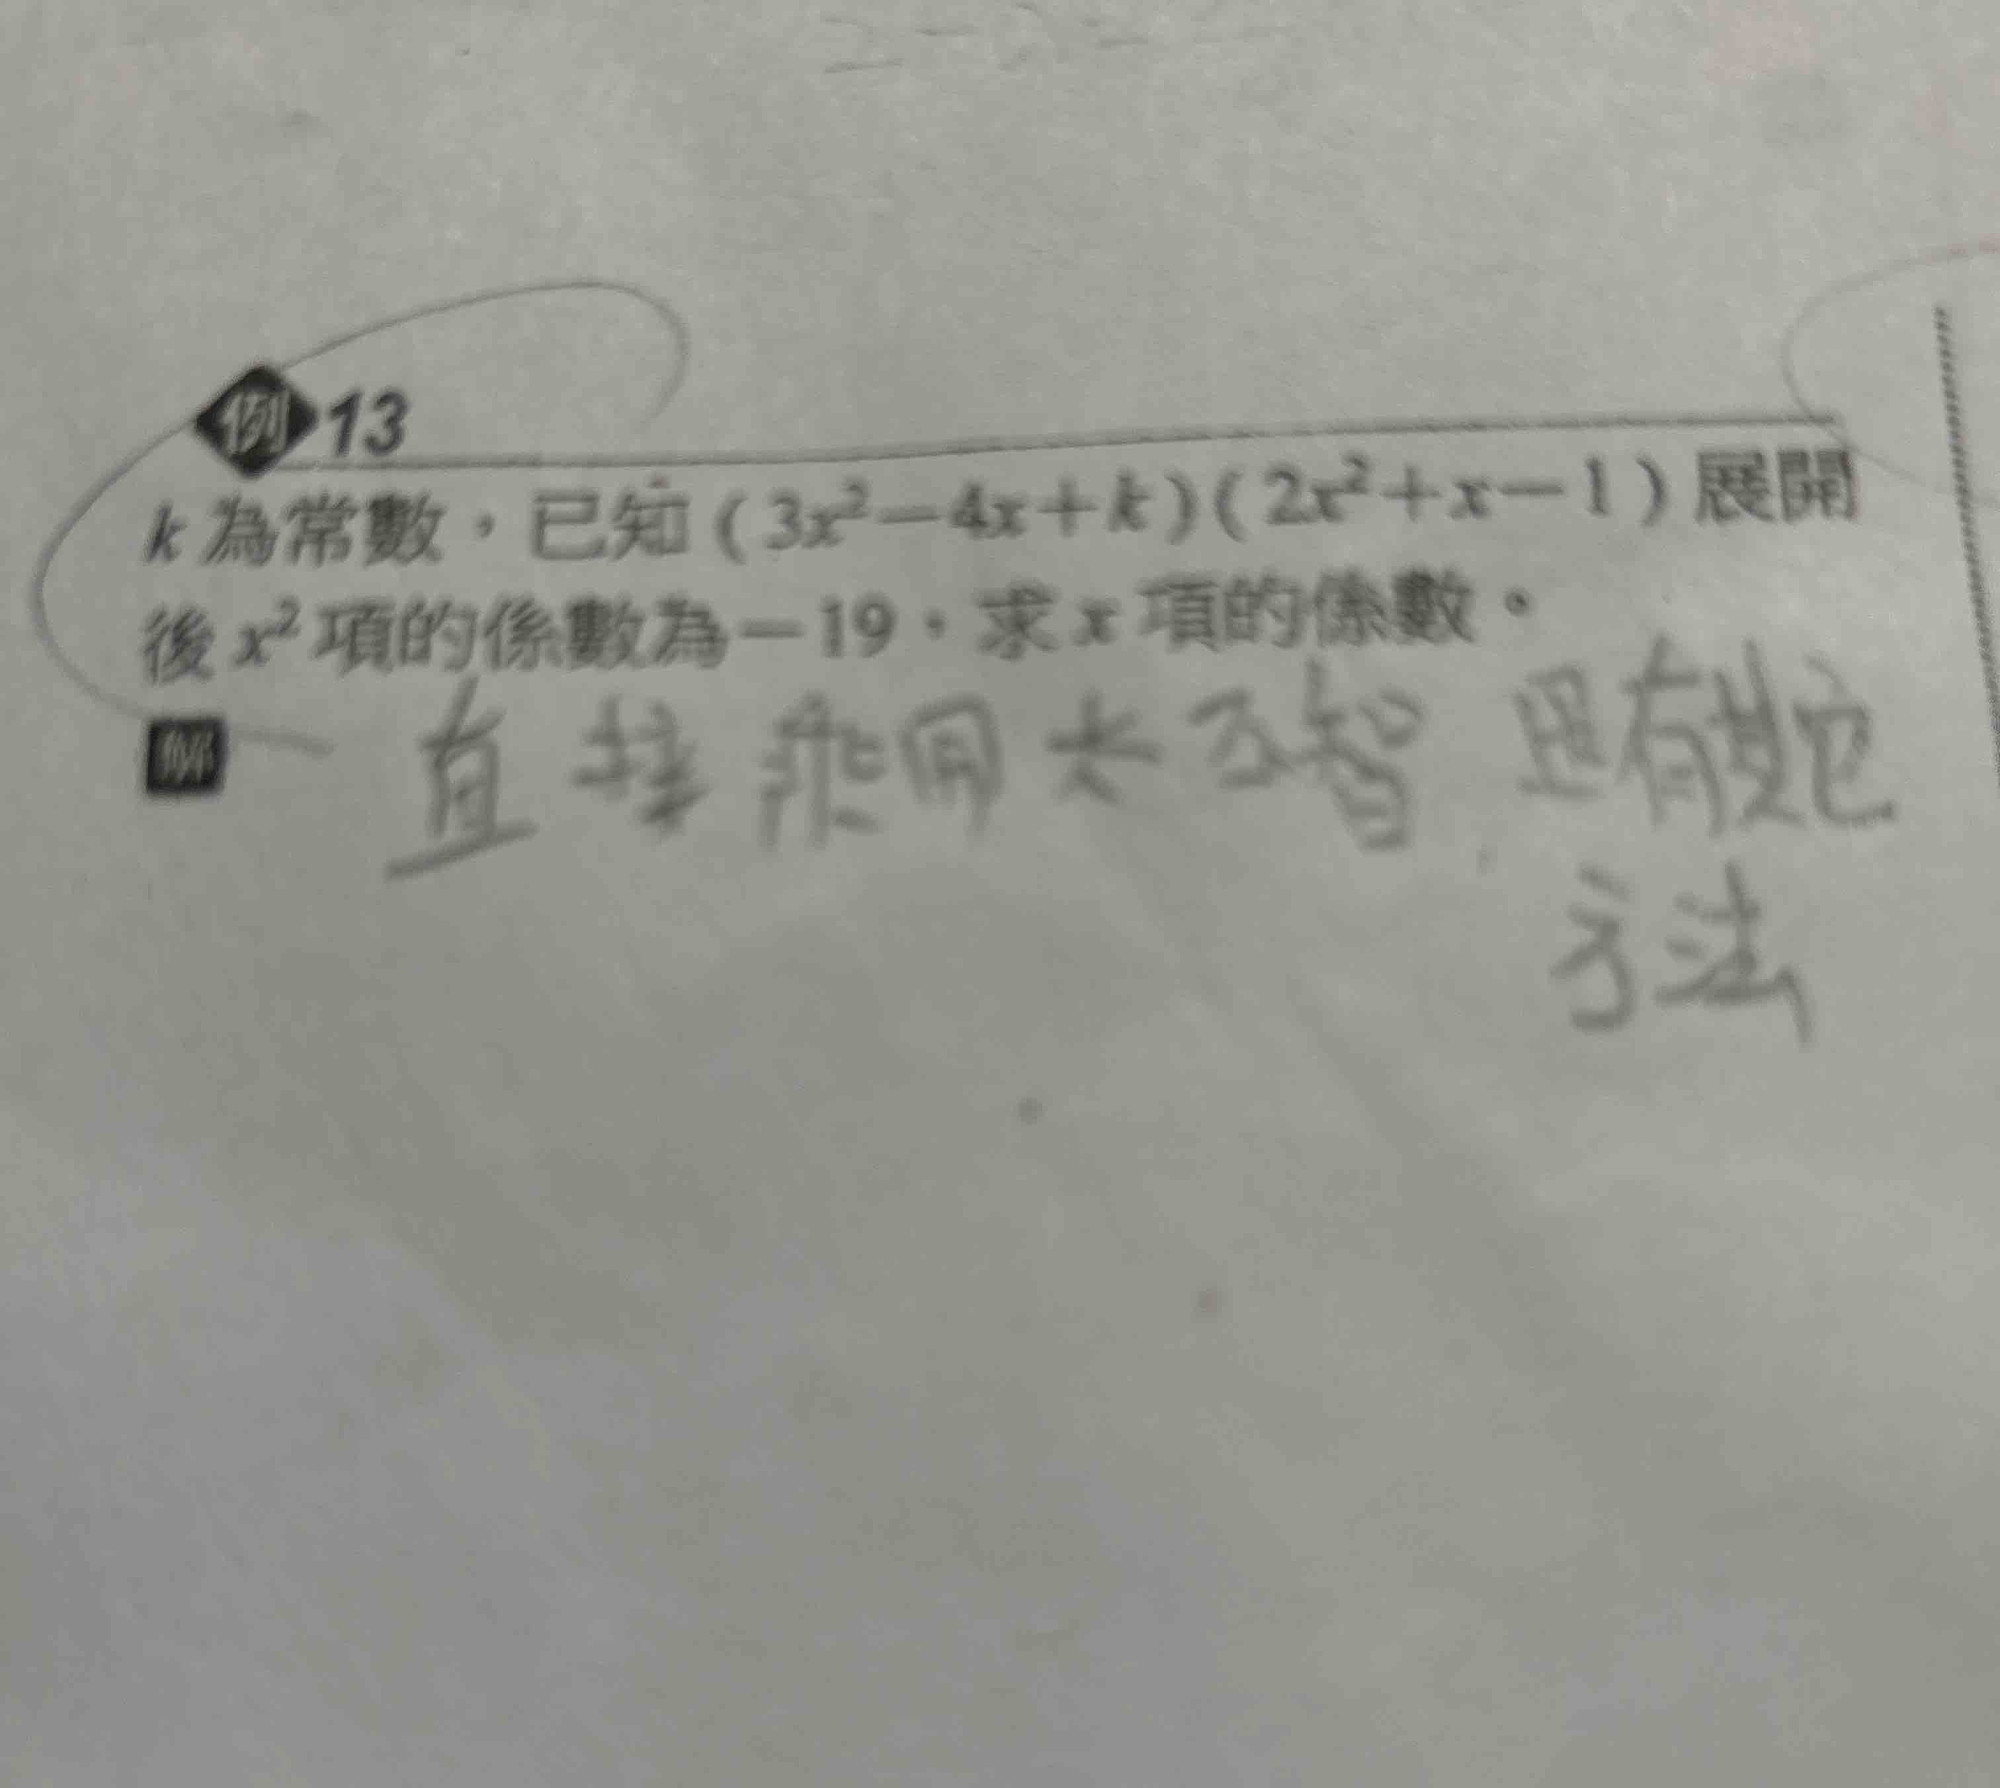 例13
k 為常數，已知 ( 3x²－4x＋k ) ( 2x²＋x－1 ) 展開
後 x² 項的係數為－19，求 x 項的係數。
解
直接乘開太不智 還有其它
方法